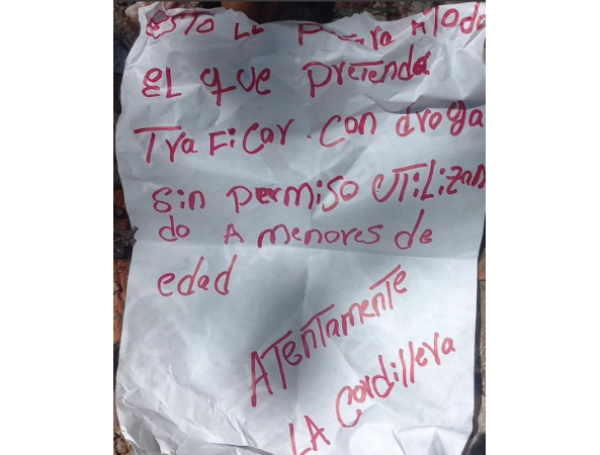 ESTO Le Pasara A TOdo
EL que PreTenda
TraFicar con droga
sin permiso UTiLizan
do A menores de
edad
ATenTamenTe
LA Cordillera